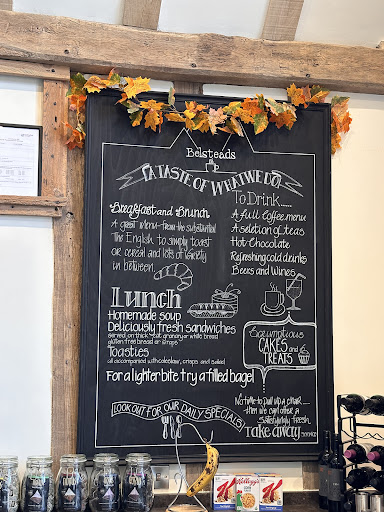 Belsteads
A TASTE OF WHAT WE DO
Breakfast and Brunch
A great menu from the substantial
The English, to simply toast
or cereal and lots of variety
in between.
Lunch
Homemade soup
Deliciously fresh sandwiches
served on thick cut granary or white bread
gluten free bread or wraps
Toasties
all accompanied with coleslaw, crisps and salad
For a lighter bite try a filled bagel
LOOK OUT FOR OUR DAILY SPECIALS
To Drink......
A full Coffee menu
A seletion of teas
Hot Chocolate
Refreshing cold drinks
Beers and Wines
Scrumptious
CAKES
and
TREATS
No time to pull up a chair....
then we can offer a
Satisfyingly fresh
Take away
Kellogg's
K
K